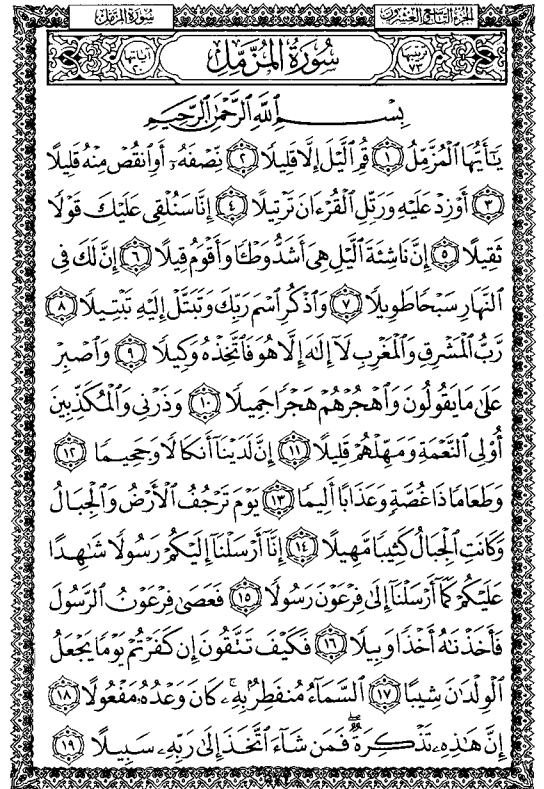 الجزء التاسع والعشرون
سورة المزمل
ترتيبها ٧٣
سُورَةُ المُزَّمِّلِ
آياتها ٢٠
بِسْمِ ٱللَّهِ ٱلرَّحْمَٰنِ ٱلرَّحِيمِ
يَٰٓأَيُّهَا ٱلْمُزَّمِّلُ ١ قُمِ ٱلَّيْلَ إِلَّا قَلِيلًا ٢ نِّصْفَهُۥٓ أَوِ ٱنقُصْ مِنْهُ قَلِيلًا
٣ أَوْ زِدْ عَلَيْهِ وَرَتِّلِ ٱلْقُرْءَانَ تَرْتِيلًا ٤ إِنَّا سَنُلْقِى عَلَيْكَ قَوْلًا
ثَقِيلًا ٥ إِنَّ نَاشِئَةَ ٱلَّيْلِ هِىَ أَشَدُّ وَطْـًٔا وَأَقْوَمُ قِيلًا ٦ إِنَّ لَكَ فِى
ٱلنَّهَارِ سَبْحًا طَوِيلًا ٧ وَٱذْكُرِ ٱسْمَ رَبِّكَ وَتَبَتَّلْ إِلَيْهِ تَبْتِيلًا ٨
رَّبُّ ٱلْمَشْرِقِ وَٱلْمَغْرِبِ لَآ إِلَٰهَ إِلَّا هُوَ فَٱتَّخِذْهُ وَكِيلًا ٩ وَٱصْبِرْ
عَلَىٰ مَا يَقُولُونَ وَٱهْجُرْهُمْ هَجْرًا جَمِيلًا ١٠ وَذَرْنِى وَٱلْمُكَذِّبِينَ
أُو۟لِى ٱلنَّعْمَةِ وَمَهِّلْهُمْ قَلِيلًا ١١ إِنَّ لَدَيْنَآ أَنكَالًا وَجَحِيمًا ١٢
وَطَعَامًا ذَا غُصَّةٍ وَعَذَابًا أَلِيمًا ١٣ يَوْمَ تَرْجُفُ ٱلْأَرْضُ وَٱلْجِبَالُ
وَكَانَتِ ٱلْجِبَالُ كَثِيبًا مَّهِيلًا ١٤ إِنَّآ أَرْسَلْنَآ إِلَيْكُمْ رَسُولًا شَٰهِدًا
عَلَيْكُمْ كَمَآ أَرْسَلْنَآ إِلَىٰ فِرْعَوْنَ رَسُولًا ١٥ فَعَصَىٰ فِرْعَوْنُ ٱلرَّسُولَ
فَأَخَذْنَٰهُ أَخْذًا وَبِيلًا ١٦ فَكَيْفَ تَتَّقُونَ إِن كَفَرْتُمْ يَوْمًا يَجْعَلُ
ٱلْوِلْدَٰنَ شِيبًا ١٧ ٱلسَّمَآءُ مُنفَطِرٌۢ بِهِۦ ۚ كَانَ وَعْدُهُۥ مَفْعُولًا ١٨
إِنَّ هَٰذِهِۦ تَذْكِرَةٌ ۖ فَمَن شَآءَ ٱتَّخَذَ إِلَىٰ رَبِّهِۦ سَبِيلًا ١٩